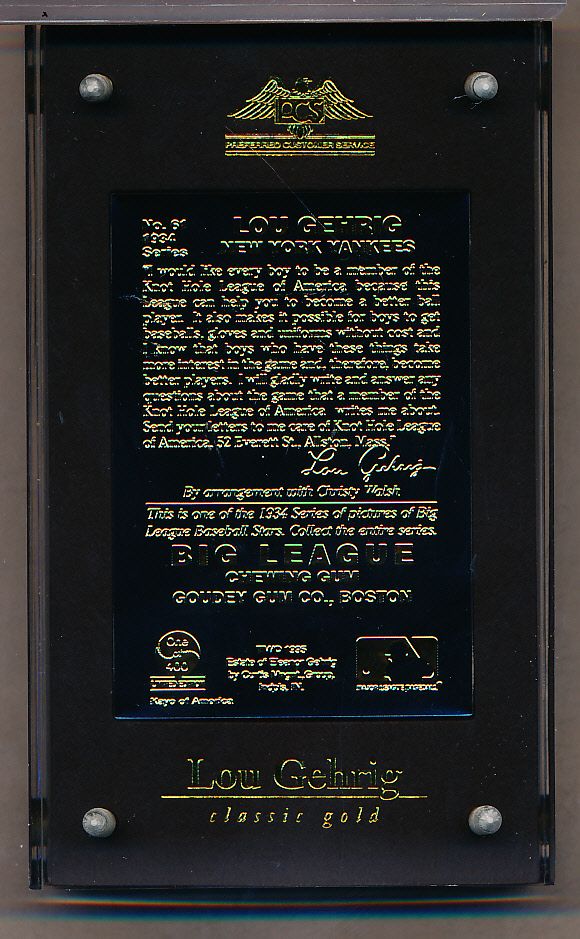 PCS
PREFERRED CUSTOMER SERVICE
No. 61
1934
Series
LOU GEHRIG
NEW YORK YANKEES
"I would like every boy to be a member of the
Knot Hole League of America because this
League can help you to become a better ball
player. It also makes it possible for boys to get
baseballs, gloves and uniforms without cost and
I know that boys who have these things take
more interest in the game and, therefore, become
better players. I will gladly write and answer any
questions about the game that a member of the
Knot Hole League of America writes me about.
Send your letters to me care of Knot Hole League
of America, 52 Everett St., Allston, Mass."
Lou Gehrig
By arrangement with Christy Walsh
This is one of the 1934 Series of pictures of Big
League Baseball Stars. Collect the entire series.
BIG LEAGUE
CHEWING GUM
GOUDEY GUM CO., BOSTON
One
of
400
LIMITED EDITION
Kayo of America
1995
Estate of Eleanor Gehrig
by Curtis Mgmt. Group,
Indpls, IN.
MAJOR LEAGUE BASEBALL
Lou Gehrig
classic gold